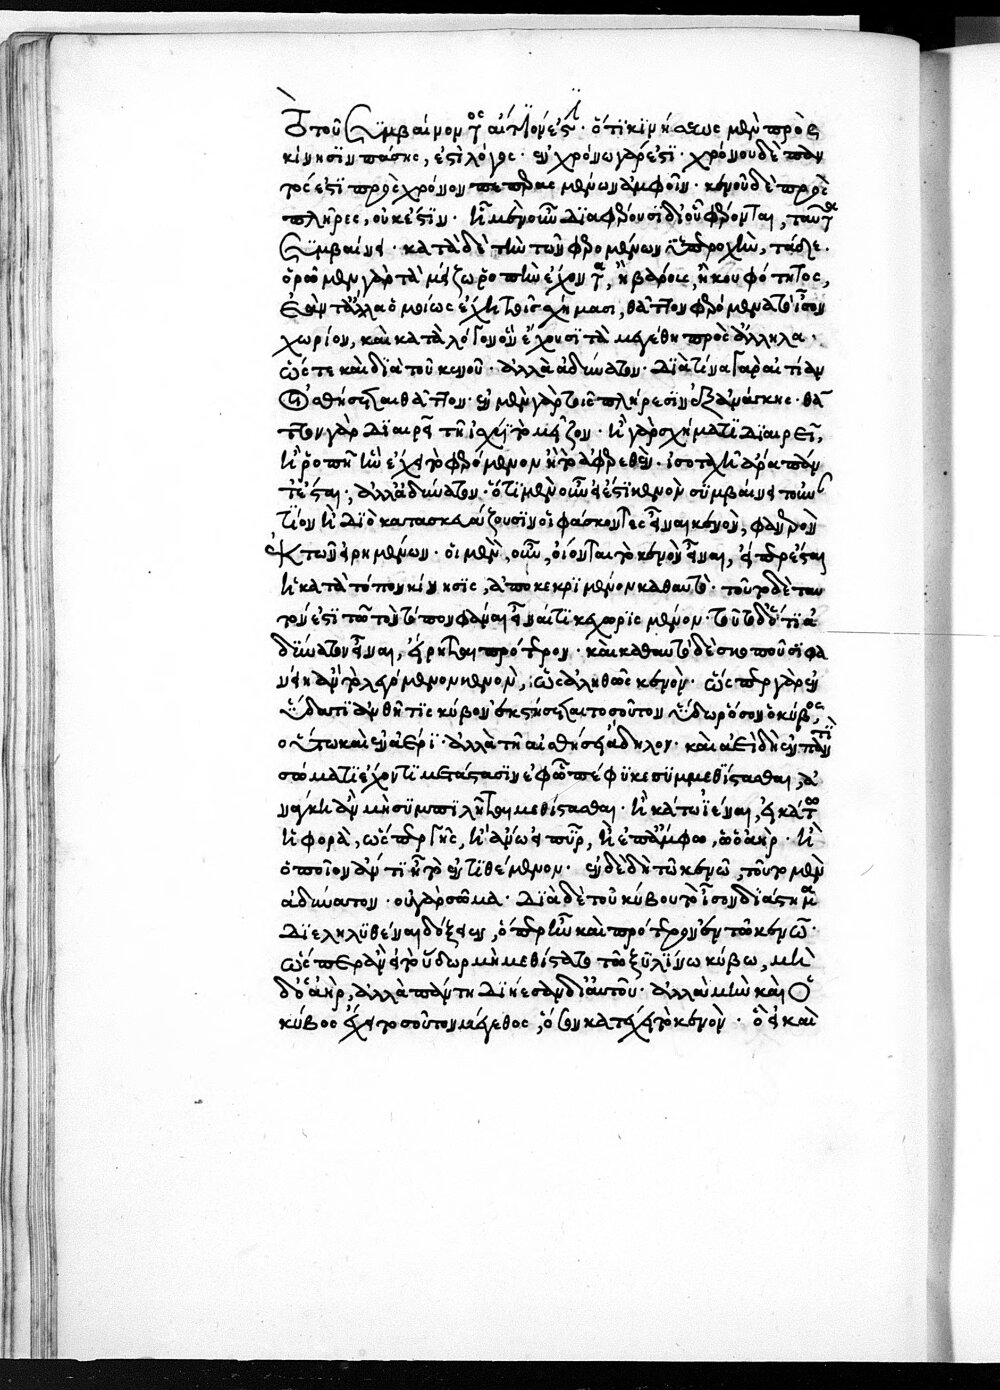 τοῦ συμβαίνοντος αἴτιόν ἐστιν· ὅτι κινήσεως μὲν πρὸς
κίνησιν πάσης, ἐστὶ λόγος· ἐν χρόνω γάρ ἐστι· χρόνου δὲ παν
τός ἐστι πρὸς χρόνον πεπερασμένων ἀμφοῖν· κενοῦ δὲ πρὸς
πλῆρες, οὐκ ἔστιν· ἧ μὲν οὖν διαφέρουσι δι' οὗ φέρονται, ταῦτα
συμβαίνει· κατὰ δὲ τὴν τῶν φερομένων ὑπεροχὴν, τάδε·
ὁρῶμεν γὰρ τὰ μείζω ῥοπὴν ἔχοντα, ἢ βάρους, ἢ κουφότητος,
ἐὰν τἄλλα ὁμοίως ἔχη τοῖς σχήμασι, θᾶττον φερόμενα τὸ ἴσον
χωρίον, καὶ κατὰ λόγον ὃν ἔχουσι τὰ μεγέθη πρὸς ἄλληλα·
ὥστε καὶ διὰ τοῦ κενοῦ· ἀλλ' ἀδύνατον· διὰ τίνα γὰρ αἰτίαν
οἰσθήσεται θᾶττον· ἐν μὲν γὰρ τοῖς πλήρεσιν ἐξ ἀνάγκης· θᾶτ
τον γὰρ διαιρεῖ τῆ ἰσχύϊ τὸ μεῖζον· ἢ γὰρ σχήματι διαιρεῖ,
ἢ ῥοπῆ ἣν ἔχει τὸ φερόμενον ἢ τὸ ἀφεθέν· ἰσοταχῆ ἄρα πάν
τ' ἔσται, ἀλλ' ἀδύνατον· ὅτι μὲν οὖν εἰ ἔστι κενὸν συμβαίνει τοὐναν
τίον ἢ διὸ κατασκευάζουσιν οἱ φάσκοντες εἶναι κενὸν, φανερὸν
ἐκ τῶν εἰρημένων· οἱ μὲν, οὖν, οἴονται τὸ κενὸν εἶναι, εἴπερ ἔσται
ἡ κατὰ τόπον κίνησις, ἀποκεκριμένον καθαυτό· τοῦτο δὲ ταυ
τόν ἐστι τῶ τὸν τόπον φάναι εἶναί τι κεχωρισμένον· τοῦτο δ' ὅτι ἀ
δύνατον εἶναι, εἴρηται πρότερον· καὶ καθαυτὸ δὲ σκοποῦσι φα
νείη ἂν τὸ λεγόμενον κενὸν, ὡς ἀληθῶς κενόν· ὥσπερ γὰρ ἐν
ὕδατι ἂν θῆ τις κύβον ἐκστήσεται τοσοῦτον ὕδωρ ὅσον ὁ κύβος,
οὕτω καὶ ἐν ἀέρι· ἀλλὰ τῆ αἰσθήσει ἄδηλον· καὶ ἀεὶ δὴ ἐν παντὶ
σώματι ἔχοντι μετάστασιν ἐφ' ὃ πέφυκε συμμεθίστασθαι, ἀ
νάγκη ἂν μὴ συμπιλῆται μεθίστασθαι· ἢ κάτω ἰέναι, εἰ κάτω
ἡ φορὰ, ὥσπερ γῆς, ἢ ἄνω εἰ πῦρ, ἢ ἐπ' ἄμφω, ὡς ὁ ἀὴρ· ἢ
ὁποῖον ἄν τι ἦ τὸ ἐντιθέμενον· ἐν δὲ δὴ τῶ κενῶ, τοῦτο μὲν
ἀδύνατον· οὐ γὰρ σῶμα· διὰ δὲ τοῦ κύβου τὸ ἴσον διάστημα
διεληλυθέναι δόξειεν, ὅπερ ἦν καὶ πρότερον ἐν τῶ κενῶ·
ὥσπερ ἂν εἰ τὸ ὕδωρ μὴ μεθίστατο τῶ ξυλίνω κύβω, μὴ
δ' ὁ ἀὴρ, ἀλλὰ πάντη διήεσαν δι' αὐτοῦ· ἀλλὰ μὴν καὶ ὁ
κύβος ἔχει τοσοῦτον μέγεθος, ὅσον κατέχει τὸ κενόν· ὃ εἰ καὶ